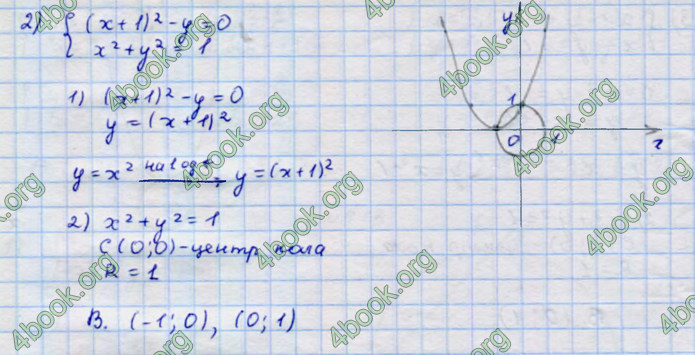 2) { (x+1)² - y = 0
x² + y² = 1
1) (x+1)² - y = 0
y = (x+1)²
y = x² на 1 од ← → y = (x+1)²
2) x² + y² = 1
C(0;0) - центр кола
R = 1
В. (-1; 0), (0; 1)
y
1
0
1
x
4book.org
4book.org
4book.org
4book.org
4book.org
4book.org
4book.org
4book.org
4book.org
4book.org
4book.org